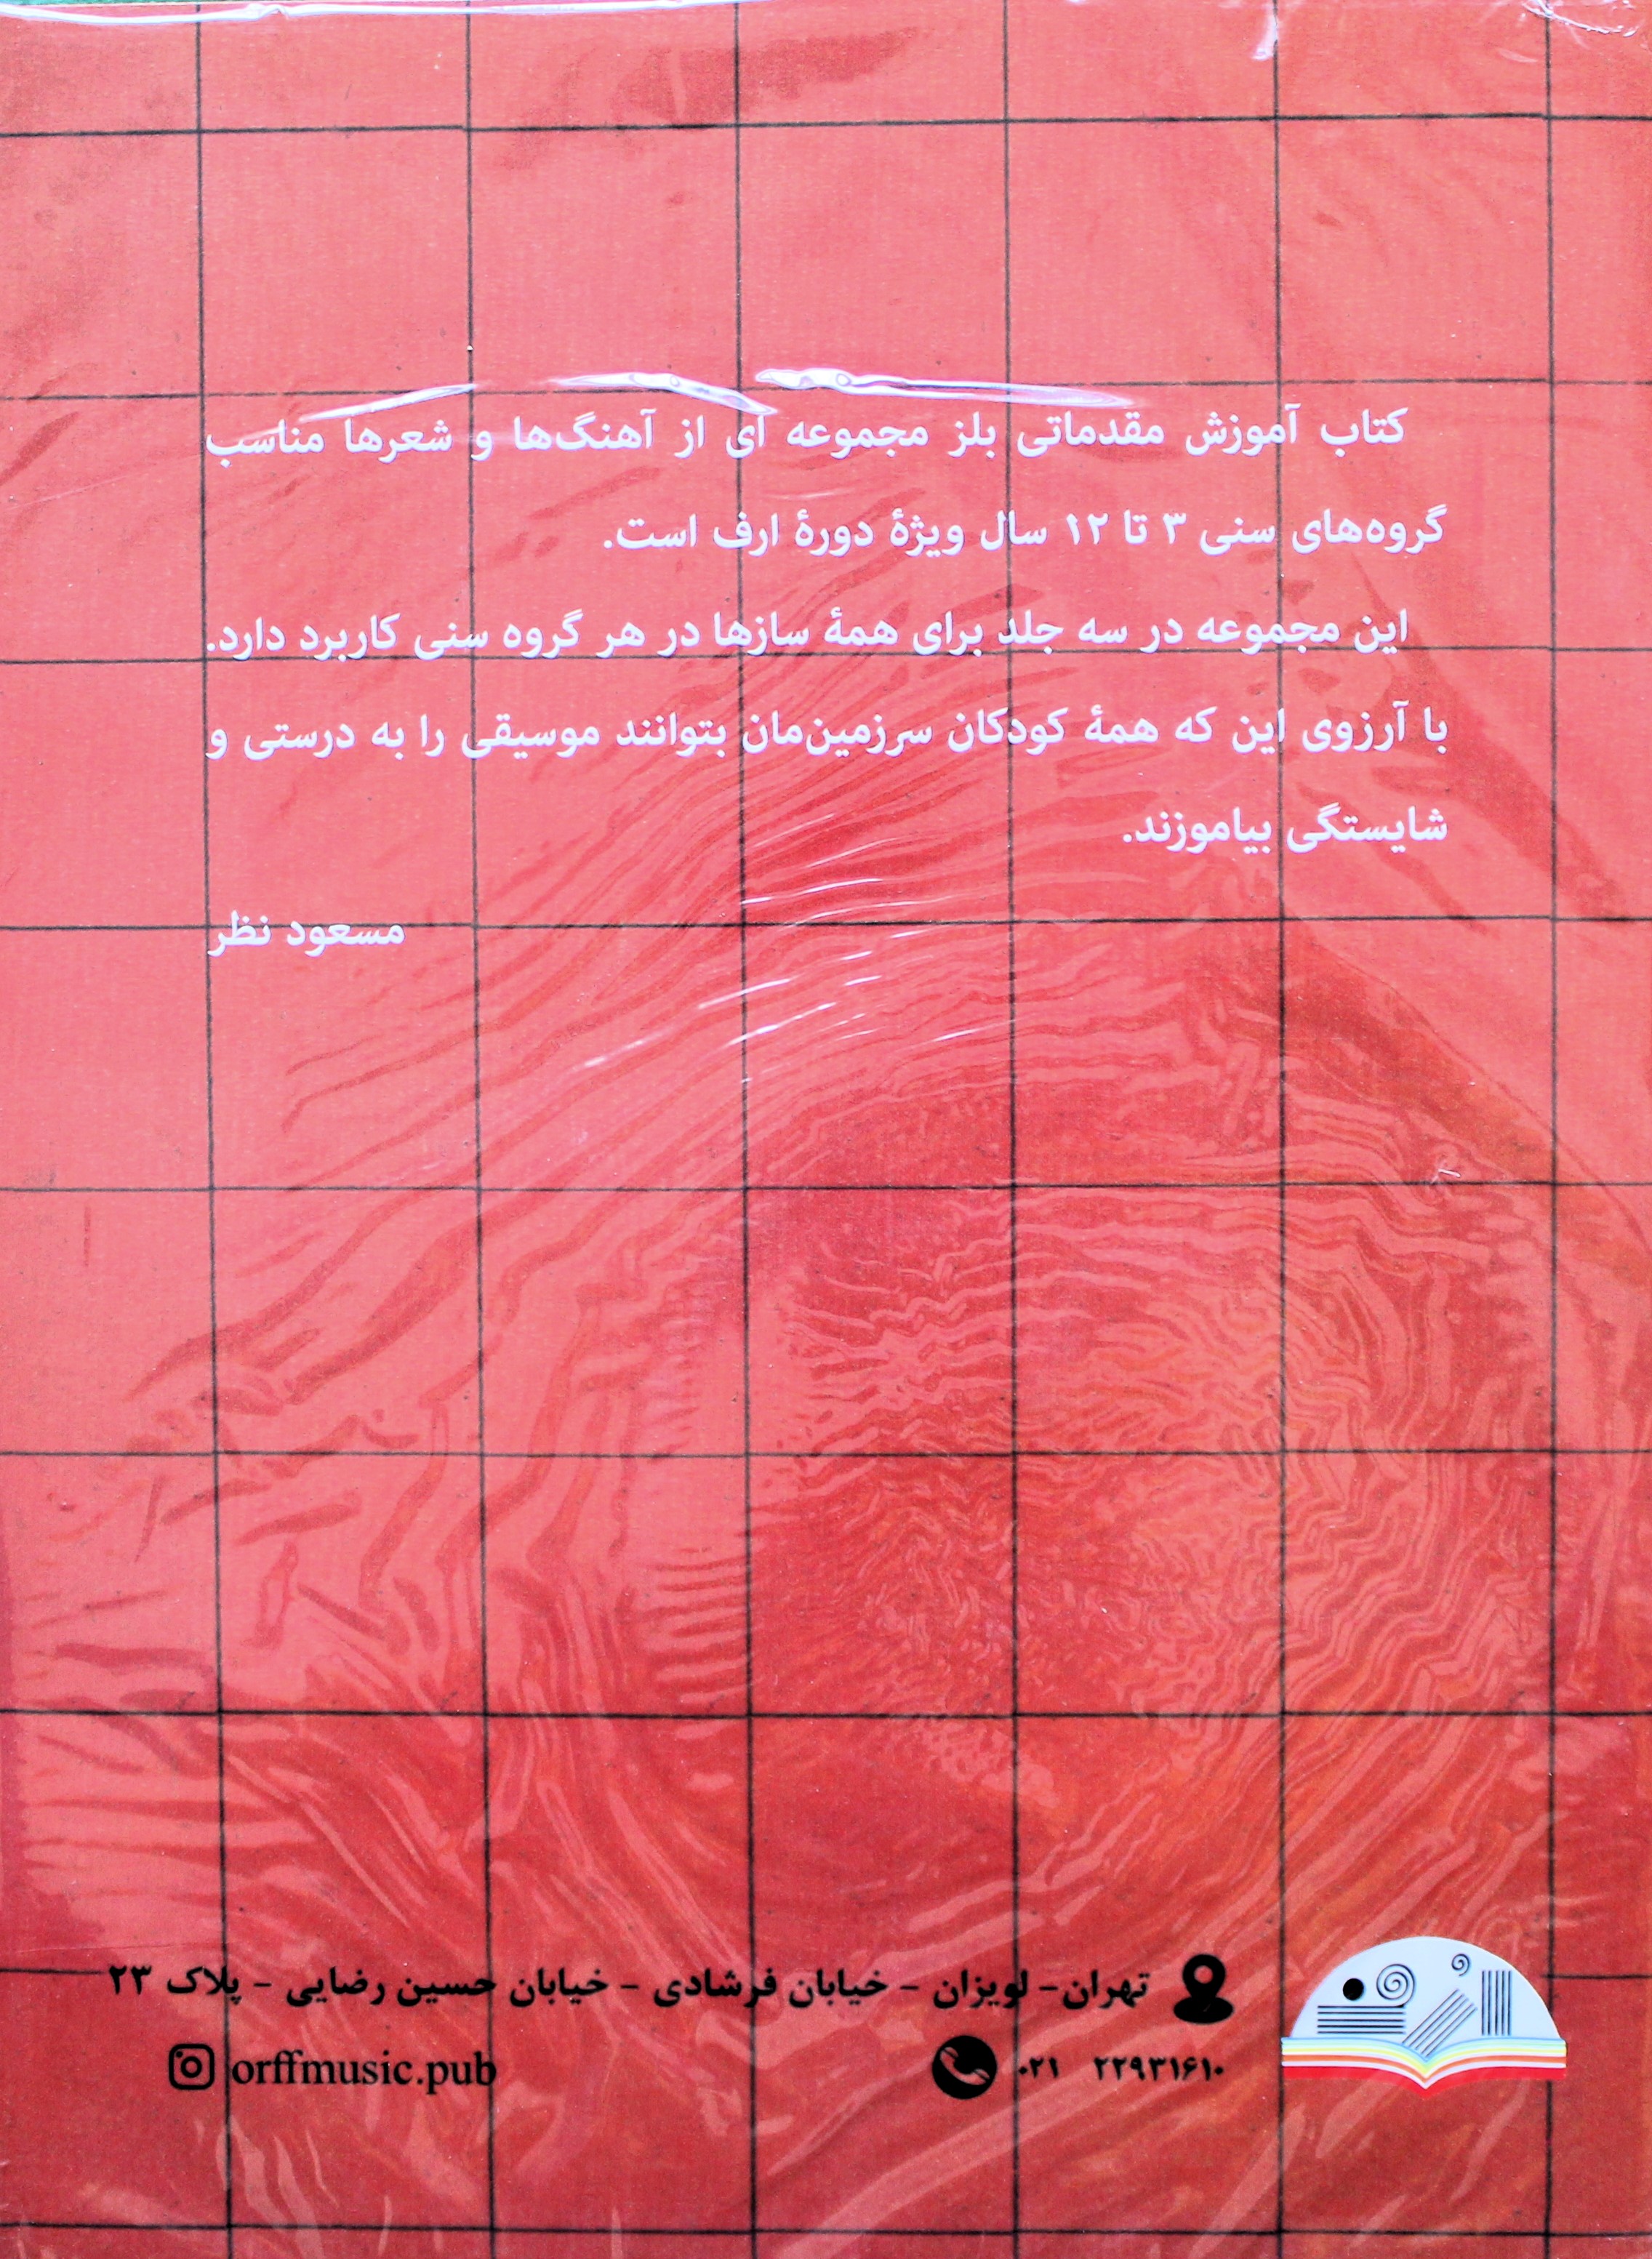 کتاب آموزش مقدماتی بلز مجموعه ای از آهنگ‌ها و شعرها مناسب
گروه‌های سنی ۳ تا ۱۲ سال ویژهٔ دورهٔ ارف است.
این مجموعه در سه جلد برای همهٔ سازها در هر گروه سنی کاربرد دارد.
با آرزوی این که همهٔ کودکان سرزمین‌مان بتوانند موسیقی را به درستی و
شایستگی بیاموزند.
مسعود نظر
تهران- لویزان - خیابان فرشادی - خیابان حسین رضایی - پلاک ۲۳
۰۲۱ ۲۲۹۳۱۶۱۰
orffmusic.pub